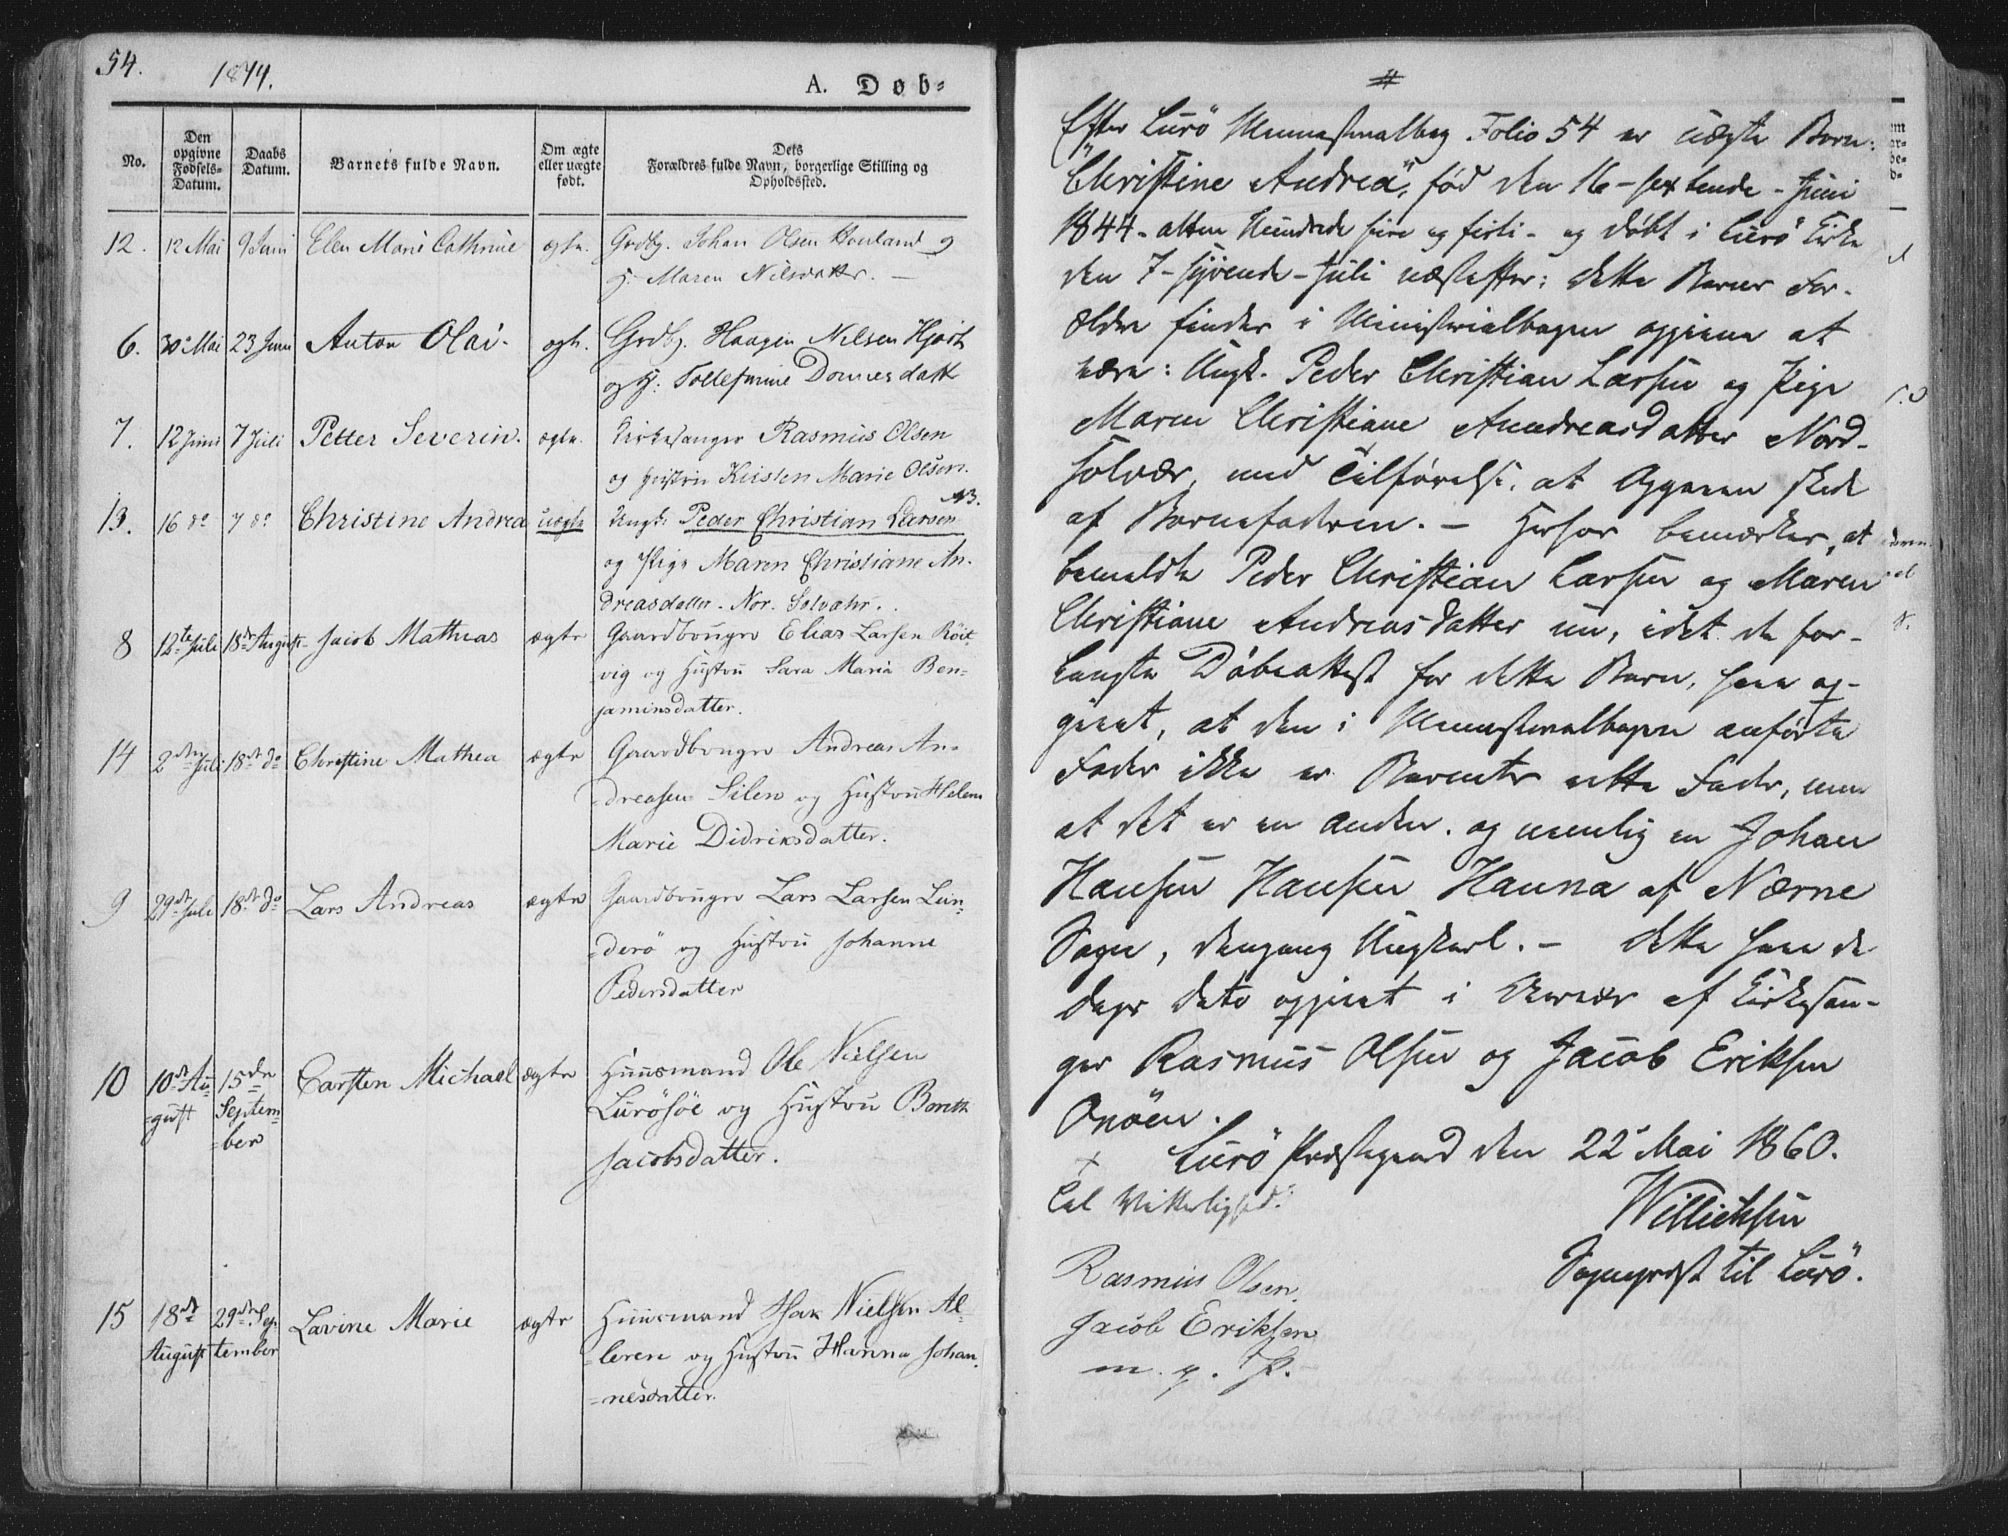 54.
1844.
A. Døb=
No.
Den opgivne Fødsels-Datum.
Daabs Datum.
Barnets fulde Navn.
Om ægte eller uægte født.
Dets
Forældres fulde Navn, borgerlige Stilling og
Opholdssted.
12. 12 Mai 9 Juni Ellen Marie Cathrine ægte. Grdbg. Johan Olsen Hovland og
H. Maren Nilsdatter. —
6. 30te Mai 23 Juni Anton Olai. ægte. Grdbg. Haagen Nilsen Hjart
og H. Dorresdatt
7. 12 Juni 7 Juli Petter Severin. ægte. Kirkesanger Rasmus Olsen
og Hustru Kirsten Marie Olsen.
13. 16 do 7 do Christine Andrea uægte Ungk: Peder Christian Larsen NB.
og Pige Maren Christiane An-
dreasdatter. Nor. Solvær.
8 12te Juli 18de August Jacob Mathias ægte Gaardbruger Elias Larsen Röit-
vig og Hustru Sara Maria Ben-
jaminsdatter.
14 2den Juli 18de do Christine Mathea ægte Gaardbruger Andreas An-
=dreasen Silen og Hustru Helena
Marie Didriksdatter.
9 29de Juli 18de do Lars Andreas ægte Gaardbruger Lars Larsen Lun=
=derö og Hustru Johanne
Pedersdatter
10 10de Au=gust 15den Septem=ber Carsten Michael ægte Huusmand Ole Nielsen
LuröSöe og Hustru Boreth
Jacobsdatter.
15 18de August 29de Sep=tember Lavine Marie ægte Huusmand Isak Nielsen Al=
=leren og Hustru Hanna Johan=
=nesdatter.
#
Efter Lurö Ministerialbog Folio 54 er uægte Barn:
"Christine Andrea", fød den 16 - sextende - Juni
1844 - atten Hundrede fire og firti - og døbt i Lurö Kirke
den 7 - syvende - Juli næstefter: dette Barns For-
ældre findes i Ministerialbogen opgivne at
være: Ungk. Peder Christian Larsen og Pige
Maren Christiane Andreasdatter Nord-
solvær, med Tilførelse, at Opgaven skede
af Barnefaderen. — Herfor bemærkes, at
bemeldte Peder Christian Larsen og Maren
Christiane Andreasdatter nu, idet de for-
langte Døbeattest for dette Barn, have op-
givet, at den i Ministerialbogen anførte
Fader ikke er Barnets rette Fader, men
at det er en anden. og nemlig en Johan
Hansen Hansen Hanna af Nærne
Sogn, dengang Ungkarl. — Dette have de
Dags Dato opgivet i Nærvær af Kirkesan-
ger Rasmus Olsen og Jacob Eriksen
Onöen.
Lurö Præstegaard den 22 Mai 1860.
Willichsen
Sognepræst til Lurö.
+
Til Vitterlighed:
Rasmus Olsen.
Jacob Eriksen
m. p. P.